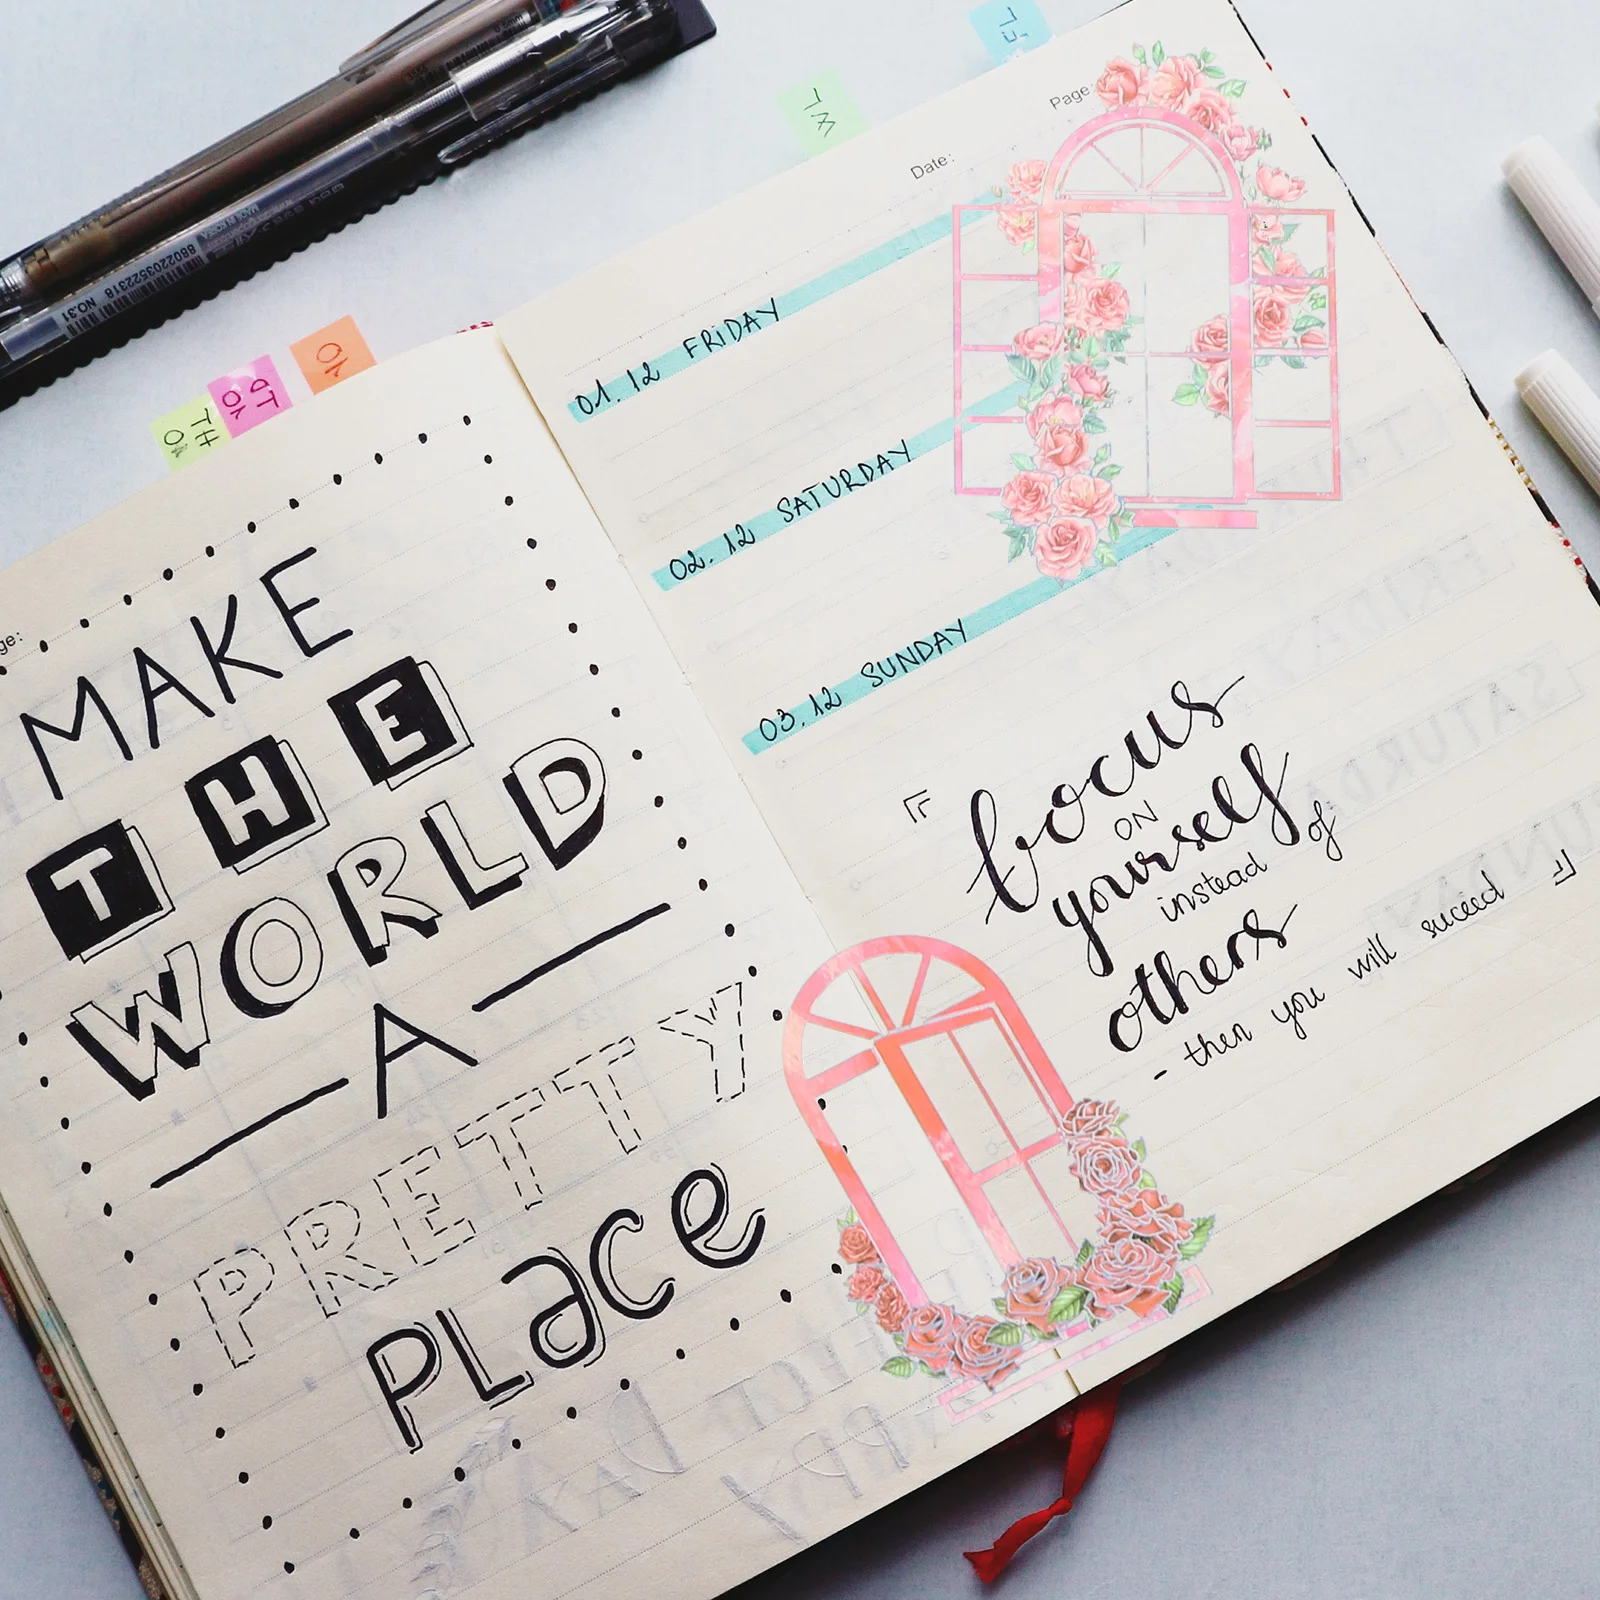 MAKE
THE
WORLD
A
PRETTY
PLace
Date:
Page
01.12 FRiDAY
02.12 SATURDAY
03.12 SUNDAY
focus
ON
yourself
instead of
others
- then you will suceed
8802203522318 NO.31